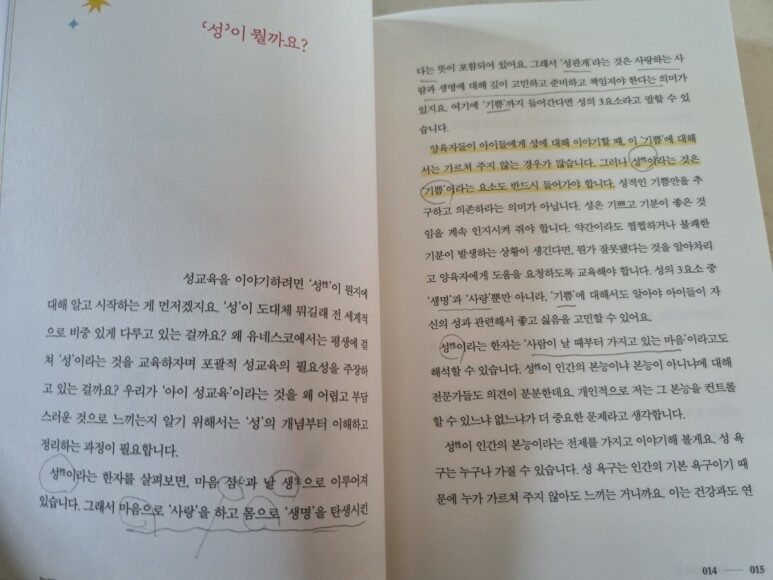 ‘성’이 뭘까요?
성교육을 이야기하려면 ‘성性’이 뭔지에
대해 알고 시작하는 게 먼저겠지요. ‘성’이 도대체 뭐길래 전 세계적
으로 비중 있게 다루고 있는 걸까요? 왜 유네스코에서는 평생에 걸
쳐 ‘성’이라는 것을 교육하자며 포괄적 성교육의 필요성을 주장하
고 있는 걸까요? 우리가 ‘아이 성교육’이라는 것을 왜 어렵고 부담
스러운 것으로 느끼는지 알기 위해서는 ‘성’의 개념부터 이해하고
정리하는 과정이 필요합니다.
성性이라는 한자를 살펴보면, 마음 심心과 날 생生으로 이루어져
있습니다. 그래서 마음으로 ‘사랑’을 하고 몸으로 ‘생명’을 탄생시킨
다는 뜻이 포함되어 있어요. 그래서 ‘성관계’라는 것은 사랑하는 사
람과 생명에 대해 깊이 고민하고 준비하고 책임져야 한다는 의미가
있지요. 여기에 ‘기쁨’까지 들어간다면 성의 3요소라고 말할 수 있
습니다.
양육자들이 아이들에게 성에 대해 이야기할 때, 이 ‘기쁨’에 대해
서는 가르쳐 주지 않는 경우가 많습니다. 그러나 성性이라는 것은
‘기쁨’이라는 요소도 반드시 들어가야 합니다. 성적인 기쁨만을 추
구하고 의존하라는 의미가 아닙니다. 성은 기쁘고 기분이 좋은 것
임을 계속 인지시켜 줘야 합니다. 약간이라도 찝찝하거나 불쾌한
기분이 발생하는 상황이 생긴다면, 뭔가 잘못됐다는 것을 알아차리
고 양육자에게 도움을 요청하도록 교육해야 합니다. 성의 3요소 중
‘생명’과 ‘사랑’뿐만 아니라, ‘기쁨’에 대해서도 알아야 아이들이 자
신의 성과 관련해서 좋고 싫음을 고민할 수 있어요.
성性이라는 한자는 ‘사람이 날 때부터 가지고 있는 마음’이라고도
해석할 수 있습니다. 성性이 인간의 본능이냐 본능이 아니냐에 대해
전문가들도 의견이 분분한데요. 개인적으로 저는 그 본능을 컨트롤
할 수 있느냐 없느냐가 더 중요한 문제라고 생각합니다.
성性이 인간의 본능이라는 전제를 가지고 이야기해 볼게요. 성 욕
구는 누구나 가질 수 있습니다. 성 욕구는 인간의 기본 욕구이기 때
문에 누가 가르쳐 주지 않아도 느끼는 거니까요. 이는 건강과도 연
014 015